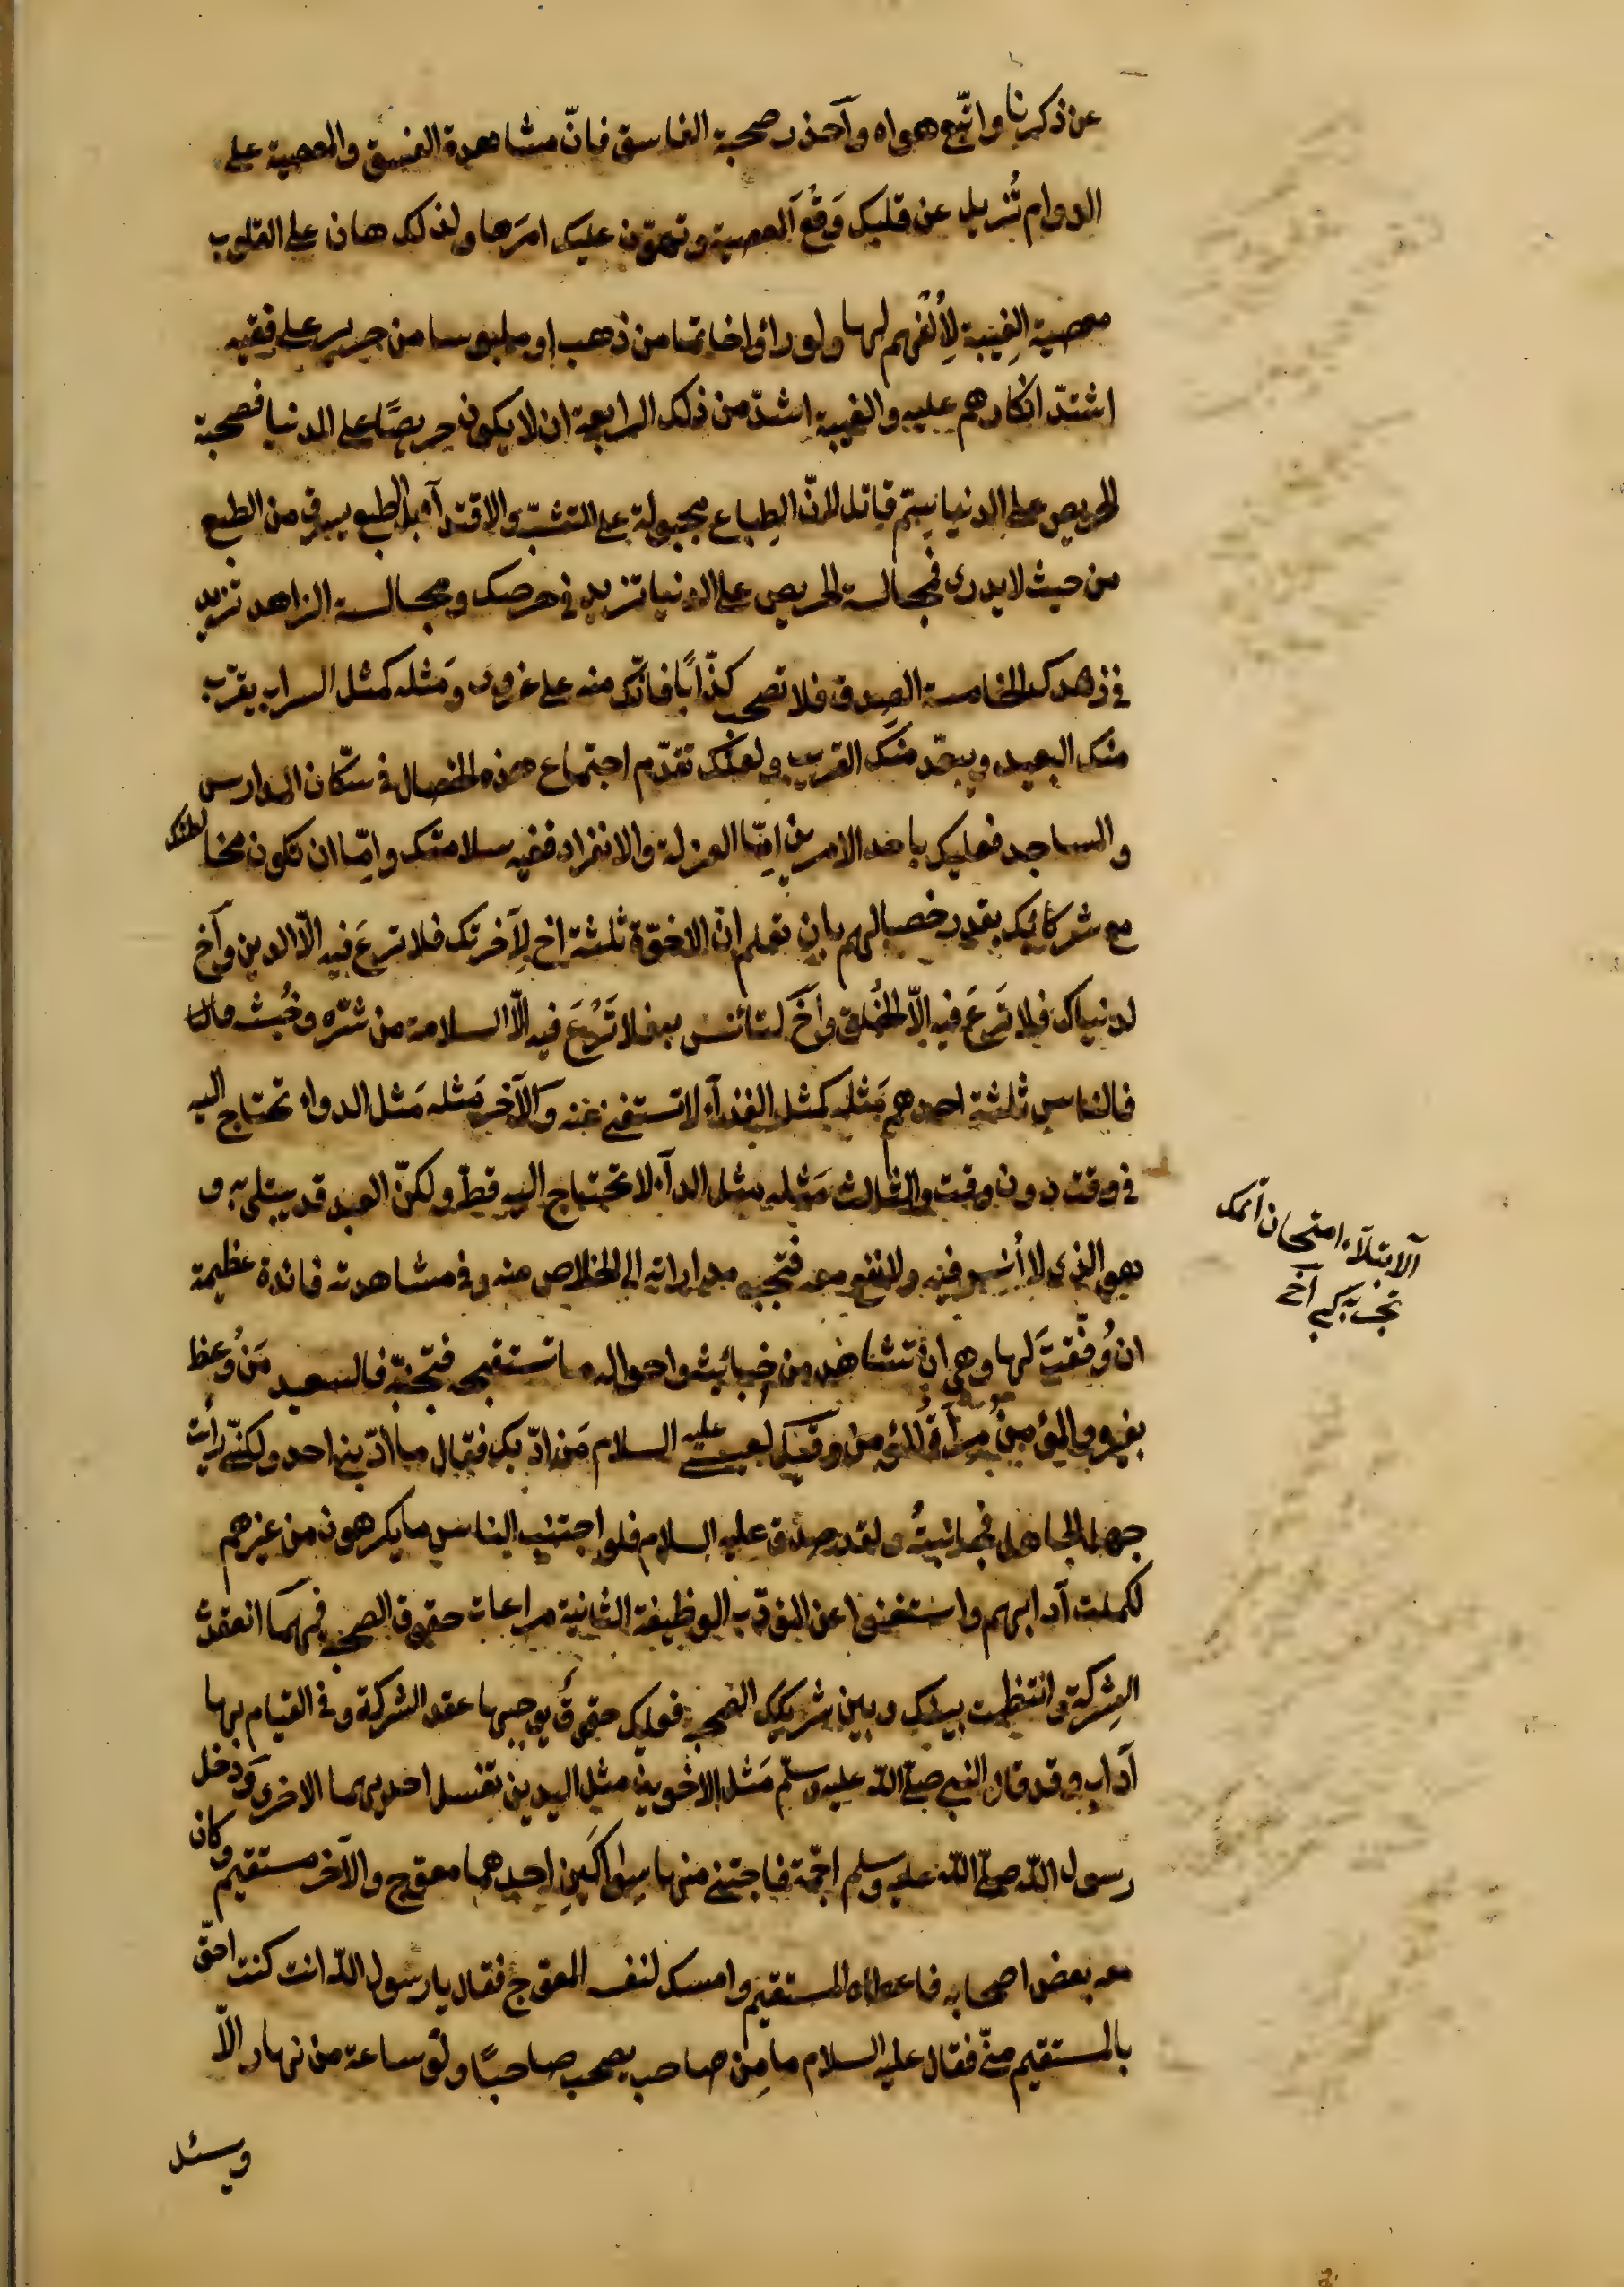 عن ذكرنا واتّبع هواه وآحذر صحبة الفاسق فانّ مشاهدة الفسق والمعصية على
الدوام تُزيل عن قلبك وَقْعَ المعصية وتهوّن عليك امرَها ولذلك هان على القلوب
معصية الغِيبة لِأُلفهم لها ولو رأوا خاتما من ذهب او ملبوسا من حرير على فقيه
اشتدّ انكارهم عليه والغيبة اشدّ من ذلك الرابعة ان لا يكون حريصًا على الدنيا فصحبة
الحريص على الدنيا سمّ قاتل لانّ الطباع مجبولة على التشبّه والاقتدآء بل الطبع يسرق من الطبع
من حيث لا يدرى فمجالسة الحريص على الدنيا تزيد في حرصك ومجالسة الزاهد تزيد
في زهدك الخامسة الصدق فلا تصحب كذّابًا فانّك منه على غرور ومَثله كمثل السراب يقرّب
منك البعيد ويبعّد منك القريب ولعلّك تقدّم اجتماع هذه الخصال في سكّان المدارس
والمساجد فعليك باحد الامرين امّا العزلة والانفراد ففيه سلامتك وامّا ان تكون مخالطتك
مع شركائك بقدر خصالهم بان تعلم انّ الاخوّة ثلثة اخ لآخرتك فلا ترعَ فيه الّا الدين وآخ
لدنياك فلا تَرعَ فيه الّا الخُلق وآخ لتأنس به فلا تَرْعَ فيه الّا السلامة من شرّه وخُبث
فالناس ثلثة احدهم مَثله كمثل الغذآء لا تستغنى عنه والآخر مَثله مَثل الدواء تحتاج اليه
في وقت دون وقت والثالث مَثله مثل الدآء لا تحتاج اليه قطّ ولكنّ العبد قد يبتلى به و
هو الذى لا أُنس فيه ولا نفع معه فتجب مداراته الى الخلاص منه وفي مشاهدته فائدة عظيمة
ان وُفّقتَ لها وهى ان تشاهد من خبائثه واحواله ما تستقبحه فتجتنبه فالسعيد مَن وُعظ
بغيره والمؤمنُ مرآةُ المؤمن وقيل لعيسى عليه السلام مَن ادّبك فقال ما ادّبنى احد ولكنّى رأيت
جهل الجاهل فجانبتُه ولقد صدق عليه السلام فلو اجتنب الناس ما يكرهون من غيرهم
لكملت آدابهم واستغنوا عن المؤدّب الوظيفة الثانية مراعات حقوق الصحبة فمهما انعقدت
الشِركة وانتظمت بينك وبين شريكك الصحبة فعليك حقوقٌ يوجبها عقد الشركة وفي القيام بها
آداب وقد قال النبى صلّى الله عليه وسلّم مَثل الاخوين مثل اليدين تغسل احديهما الاخرى وَدخل
رسول الله صلّى الله عليه وسلم اجمة فاجتنى منها سِواكَينِ احدهما معوّج والآخر مستقيم وكان
معه بعض اصحابه فاعطاه المستقيم وامسك لنفسه المعوّج فقال يا رسول الله انت كنت احقّ
بالمستقيم منّى فقال عليه السلام ما مِن صاحب يصحب صاحبًا ولَو ساعة من نهار الّا
وسئل
الابتلآء امتحان اتمك
تجربه كبى آخى